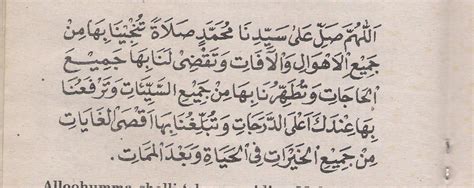 اَللّٰهُمَّ صَلِّ عَلٰى سَيِّدِنَا مُحَمَّدٍ صَلَاةً تُنْجِيْنَا بِهَا مِنْ
جَمِيْعِ الْاَهْوَالِ وَالْآفَاتِ وَتَقْضِى لَنَا بِهَا جَمِيْعَ
الْحَاجَاتِ وَتُطَهِّرُنَا بِهَا مِنْ جَمِيْعِ السَّيِّئَاتِ وَتَرْفَعُنَا
بِهَا عِنْدَكَ اَعْلَى الدَّرَجَاتِ وَتُبَلِّغُنَا بِهَا اَقْصَى الْغَايَاتِ
مِنْ جَمِيْعِ الْخَيْرَاتِ فِى الْحَيَاةِ وَبَعْدَ الْمَمَاتِ.
Alloohumma